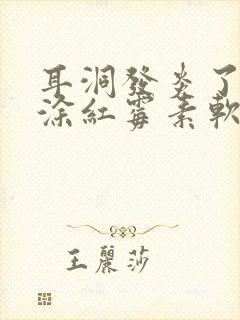 耳洞發炎了
涂紅霉素軟
王麗莎